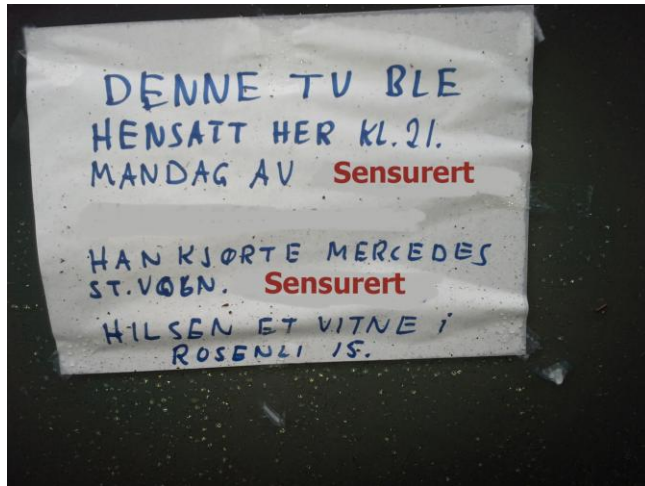 DENNE TV BLE
HENSATT HER KL. 21.
MANDAG AV Sensurert
HAN KJØRTE MERCEDES
ST. VOGN. Sensurert
HILSEN ET VITNE i
ROSENLI 15.